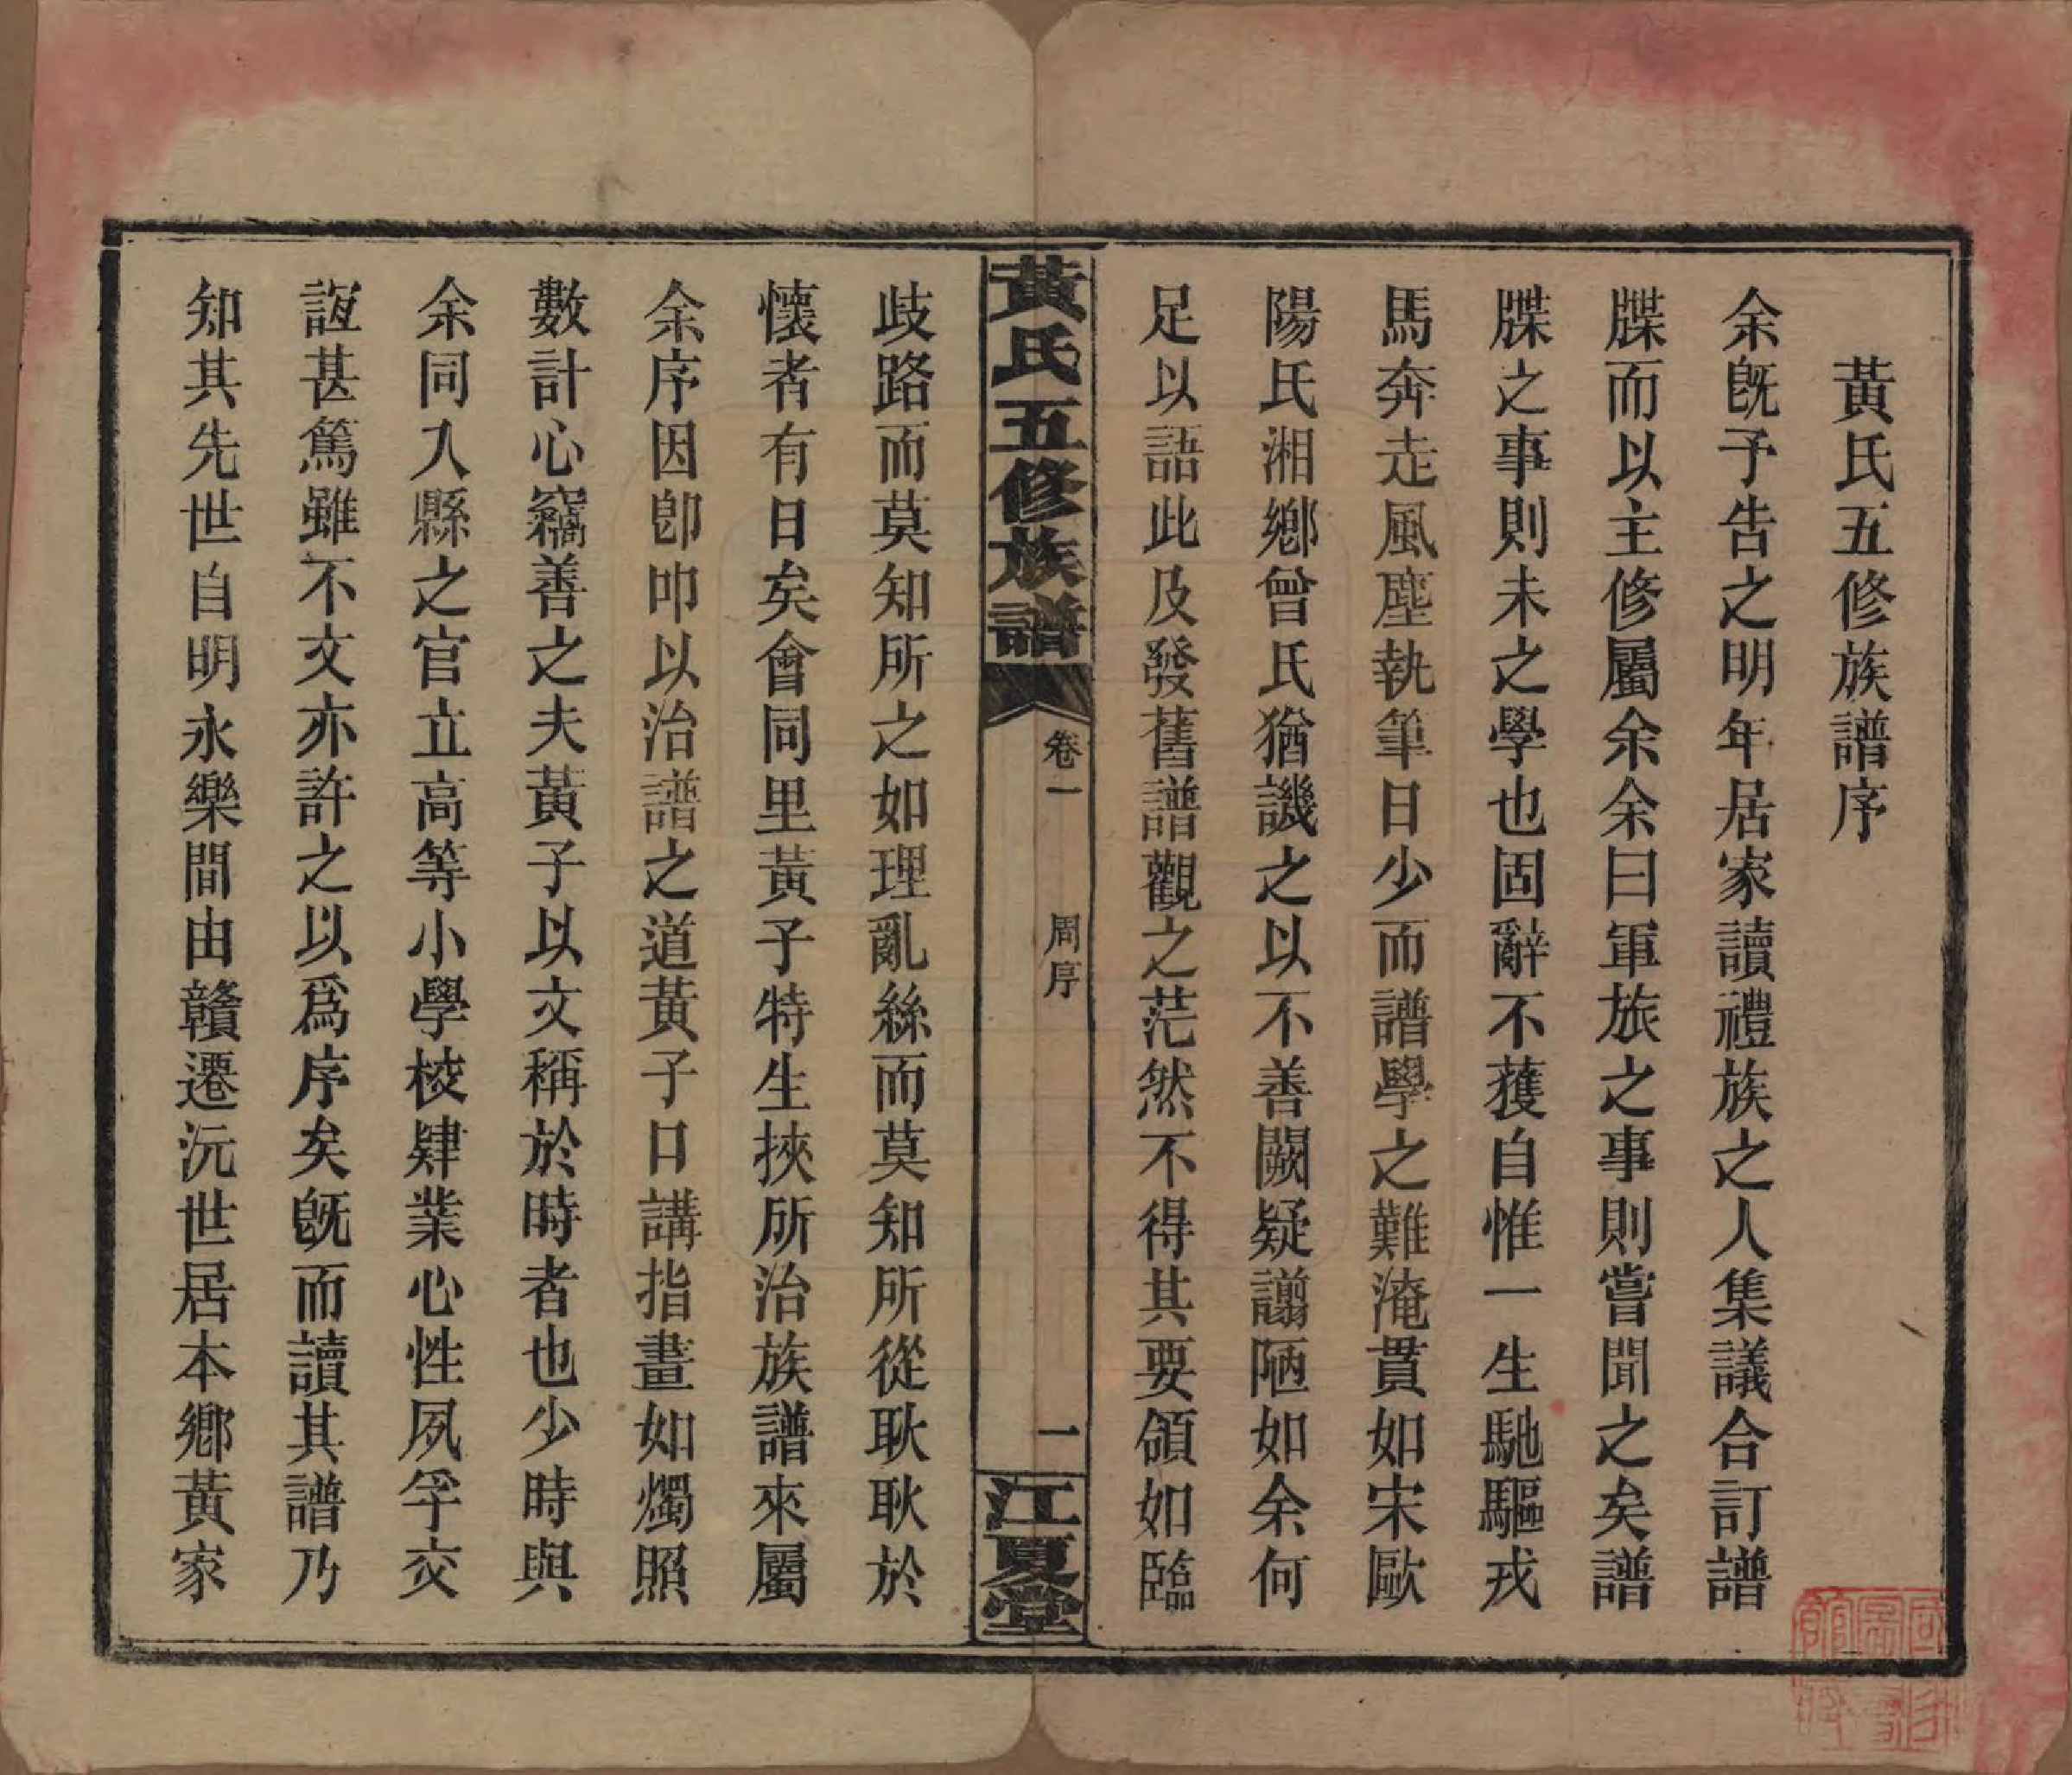 黃氏五修族譜序
余旣予告之明年居家讀禮族之人集議合訂譜
牒而以主修屬余余曰軍旅之事則嘗聞之矣譜
牒之事則未之學也固辭不獲自惟一生馳驅戎
馬奔走風塵執筆日少而譜學之難淹貫如宋歐
陽氏湘鄉曾氏猶譏之以不善闕疑譾陋如余何
足以語此及發舊譜觀之茫然不得其要領如臨
黃氏五修族譜
卷一
周序
一
江夏堂
歧路而莫知所之如理亂絲而莫知所從耿耿於
懷者有日矣會同里黃子特生挾所治族譜來屬
余序因卽叩以治譜之道黃子口講指畫如燭照
數計心竊善之夫黃子以文稱於時者也少時與
余同入縣之官立高等小學校肄業心性夙孚交
誼甚篤雖不文亦許之以爲序矣旣而讀其譜乃
知其先世自明永樂間由贛遷沅世居本鄉黃家